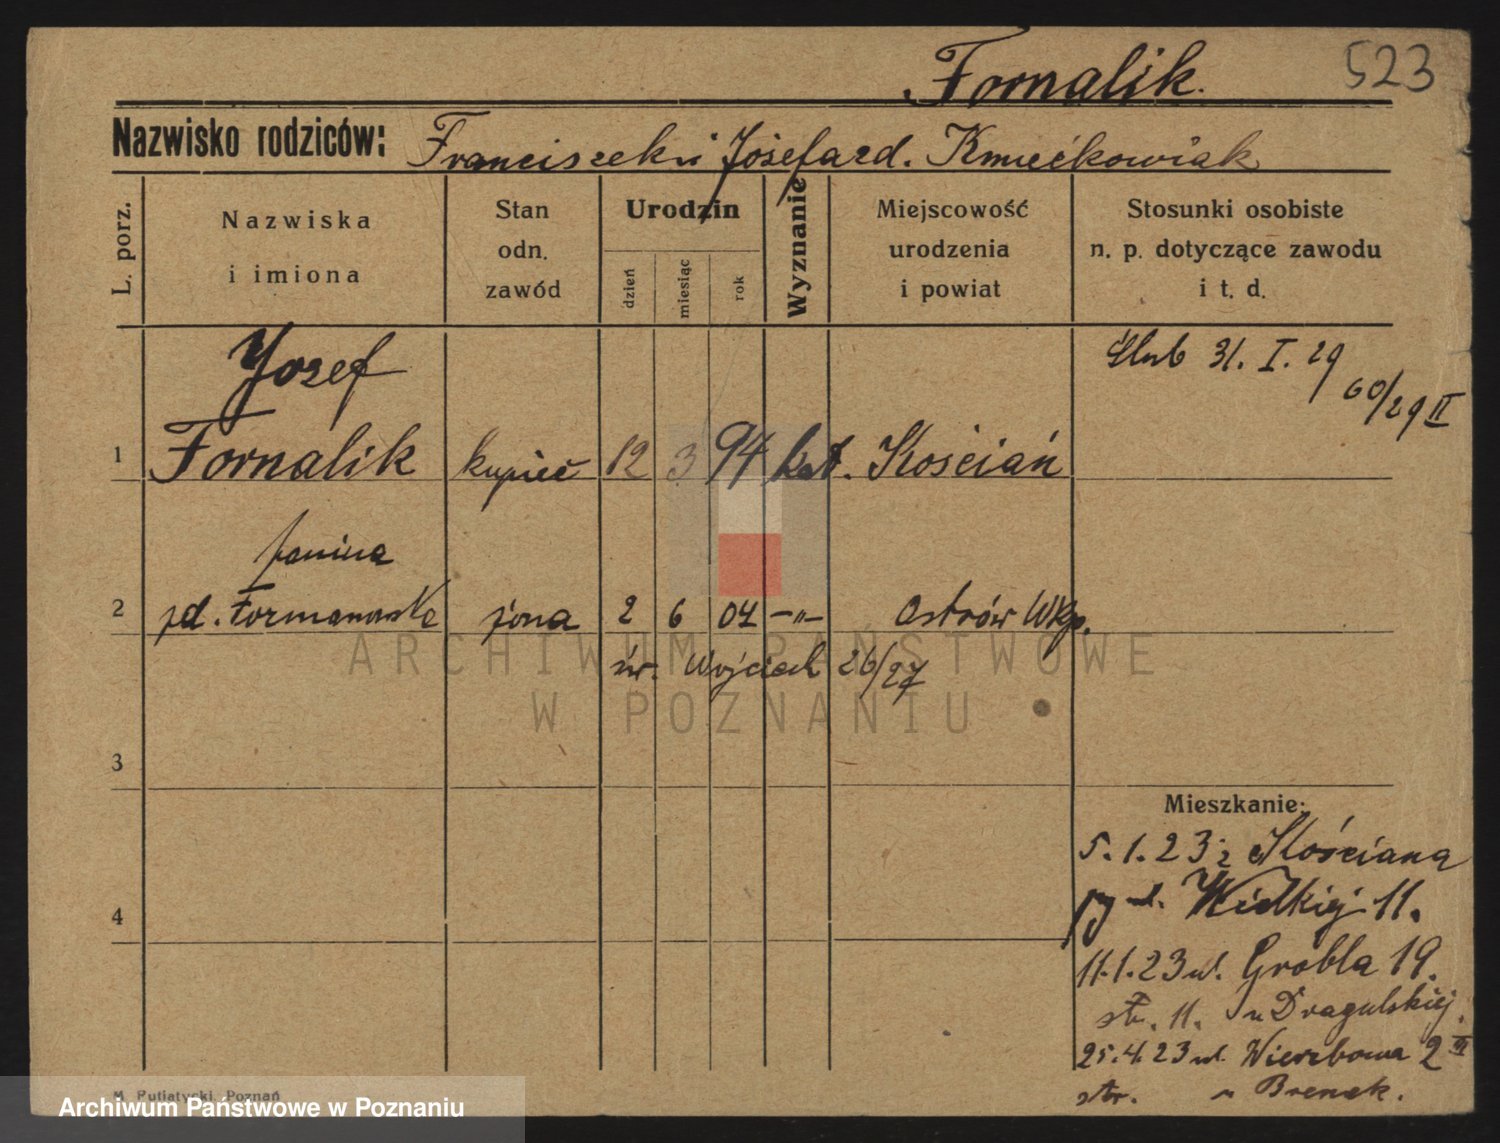 Fornalik.
523
Nazwisko rodziców: Franciszek i Józefa zd. Kmiećkowiak
L. porz.
Nazwiska
i imiona
Stan
odn.
zawód
Urodzin
dzień
miesiąc
rok
Wyznanie
Miejscowość
urodzenia
i powiat
Stosunki osobiste
n. p. dotyczące zawodu
i t. d.
Ślub 31. I. 29
60/29 II
Jozef
1 Fornalik kupiec 12 3 94 kat. Kościań
Janina
2 zd. Formanowska żona 2 6 04 -"- Ostrów Wkp.
św. Wojciech 26/27
ARCHIWUM PAŃSTWOWE
W POZNANIU
3
Mieszkanie:
5.1.23 z Kościana
ul. Wielkiej 11.
4
11.1.23 ul. Grobla 19.
str. 11. u Dragulskiej.
25.4.23 ul. Wierzbowa 2 III
str. u Brenek.
M. Putiatycki, Poznań
Archiwum Państwowe w Poznaniu